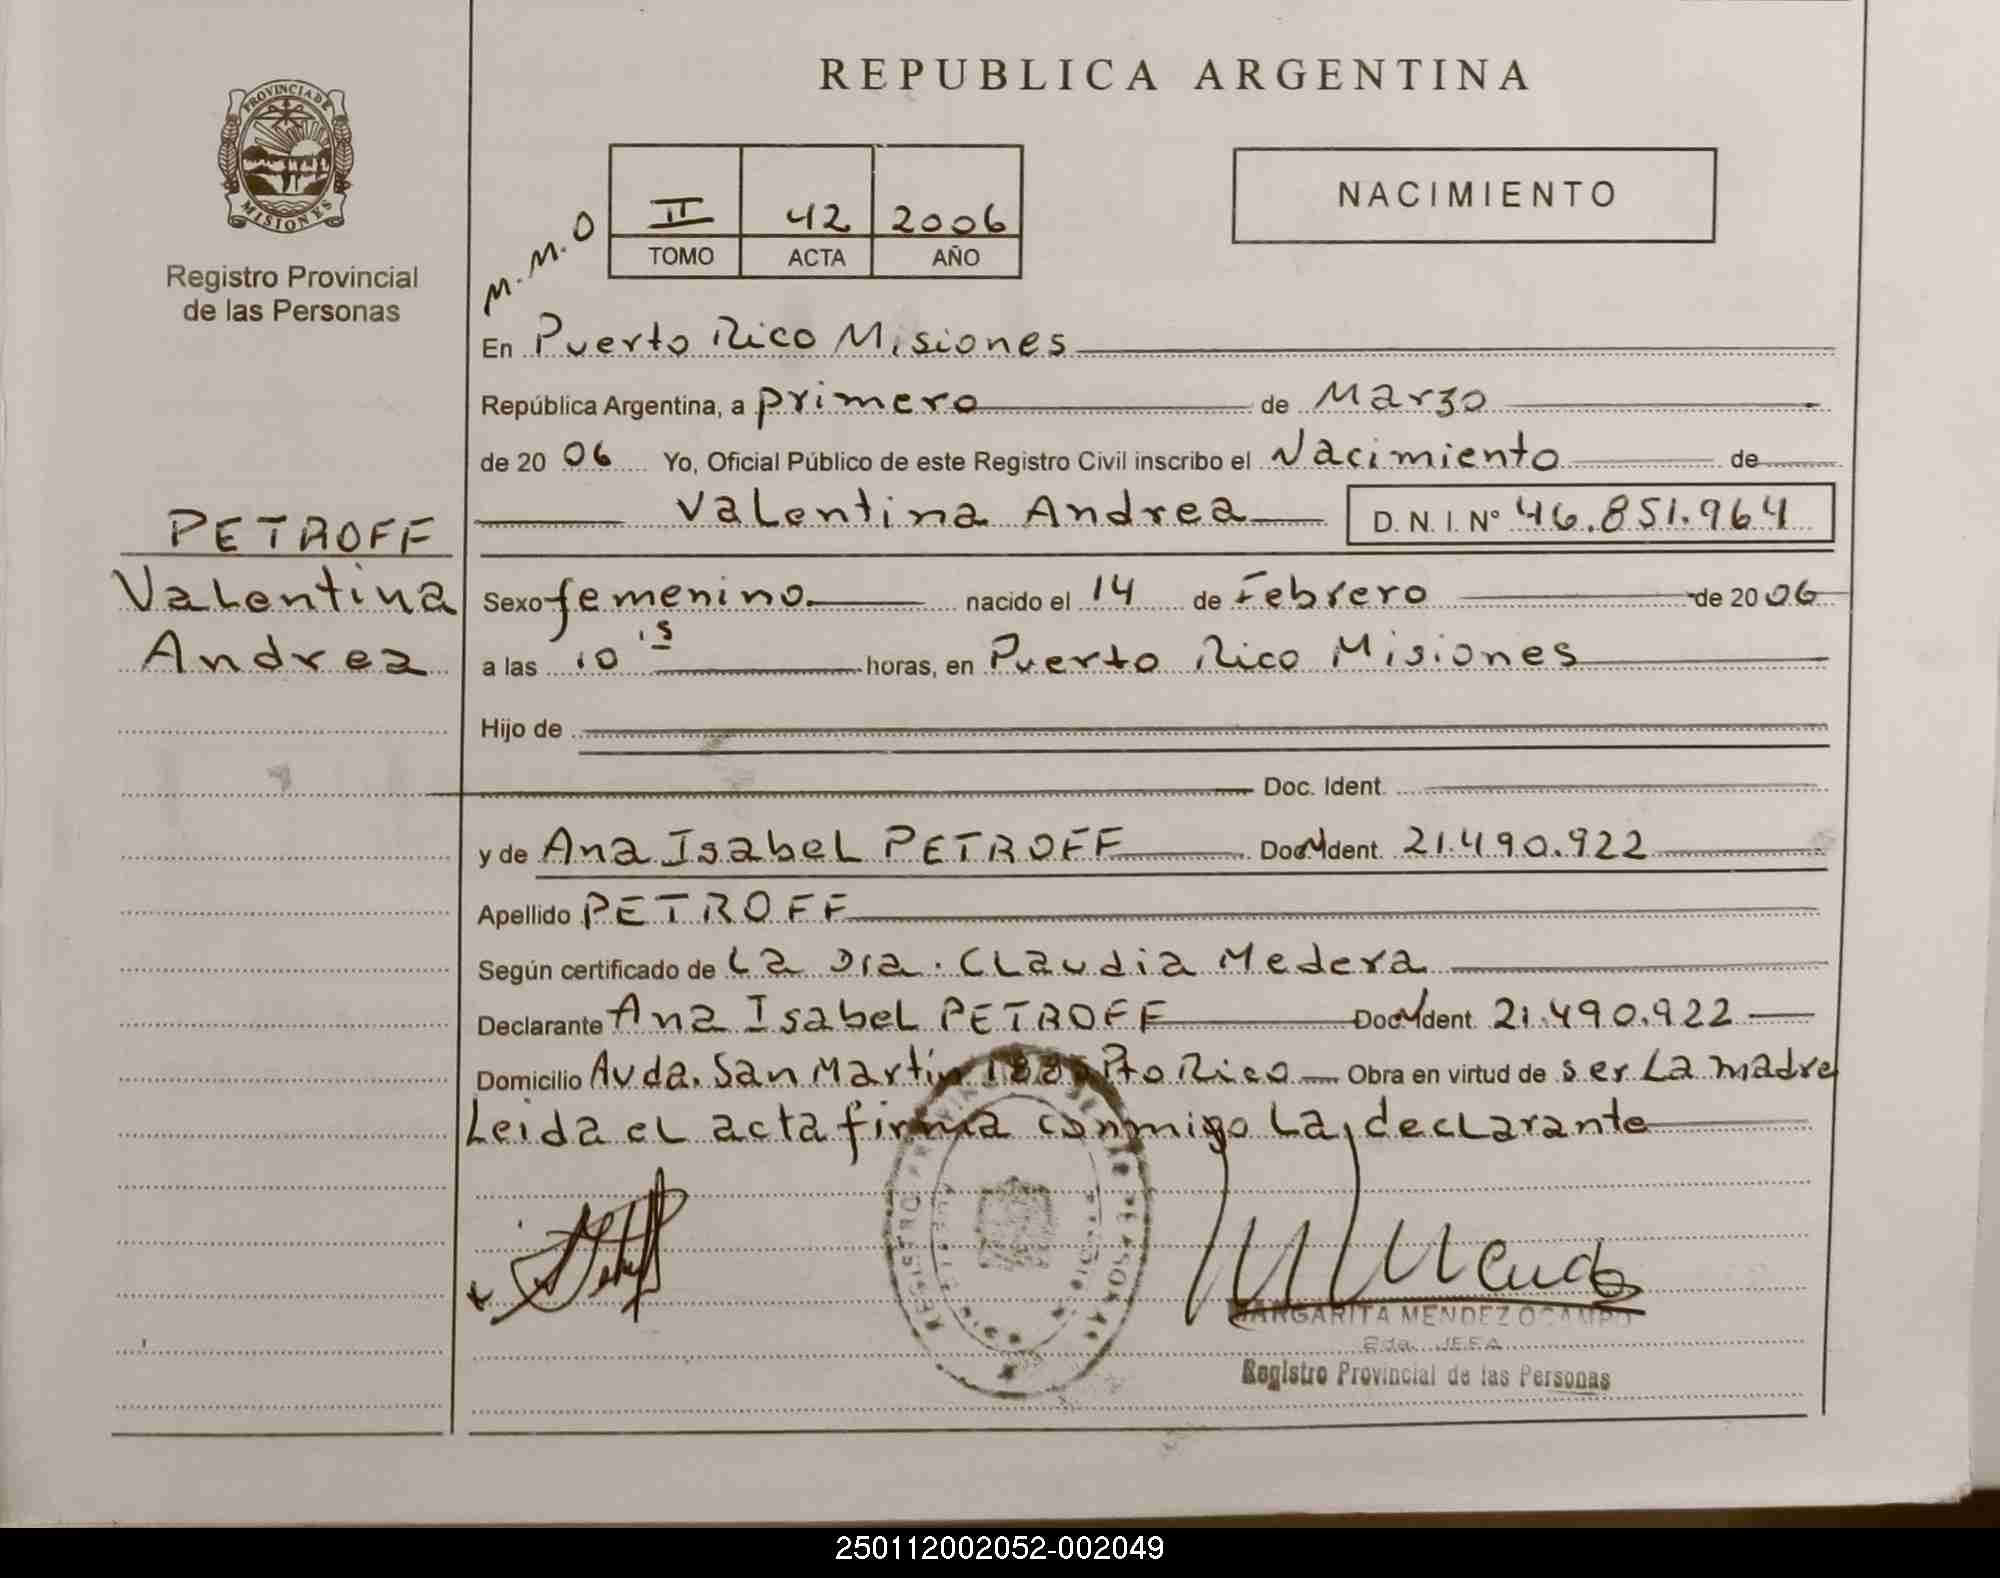 REPUBLICA ARGENTINA
PROVINCIA DE
MISIONES
Registro Provincial
de las Personas
M.M.O
II 42 2006
TOMO ACTA AÑO
NACIMIENTO
En Puerto Rico Misiones
República Argentina, a primero de Marzo
de 20 06 Yo, Oficial Público de este Registro Civil inscribo el Nacimiento de
Valentina Andrea D.N.I. Nº 46.851.964
PETROFF
Valentina
Andrea
Sexo femenino nacido el 14 de Febrero de 20 06
a las 10 15 horas, en Puerto Rico Misiones
Hijo de
Doc. Ident.
y de Ana Isabel PETROFF Doc Ident. 21.490.922
Apellido PETROFF
Según certificado de La Dra. Claudia Medera
Declarante Ana Isabel PETROFF Doc Ident. 21.490.922
Domicilio Avda. San Martín Pto Rico Obra en virtud de ser La madre
Leida el acta firma conmigo La declarante
MARGARITA MENDEZ OCAMPO
JEFA
Registro Provincial de las Personas
250112002052-002049